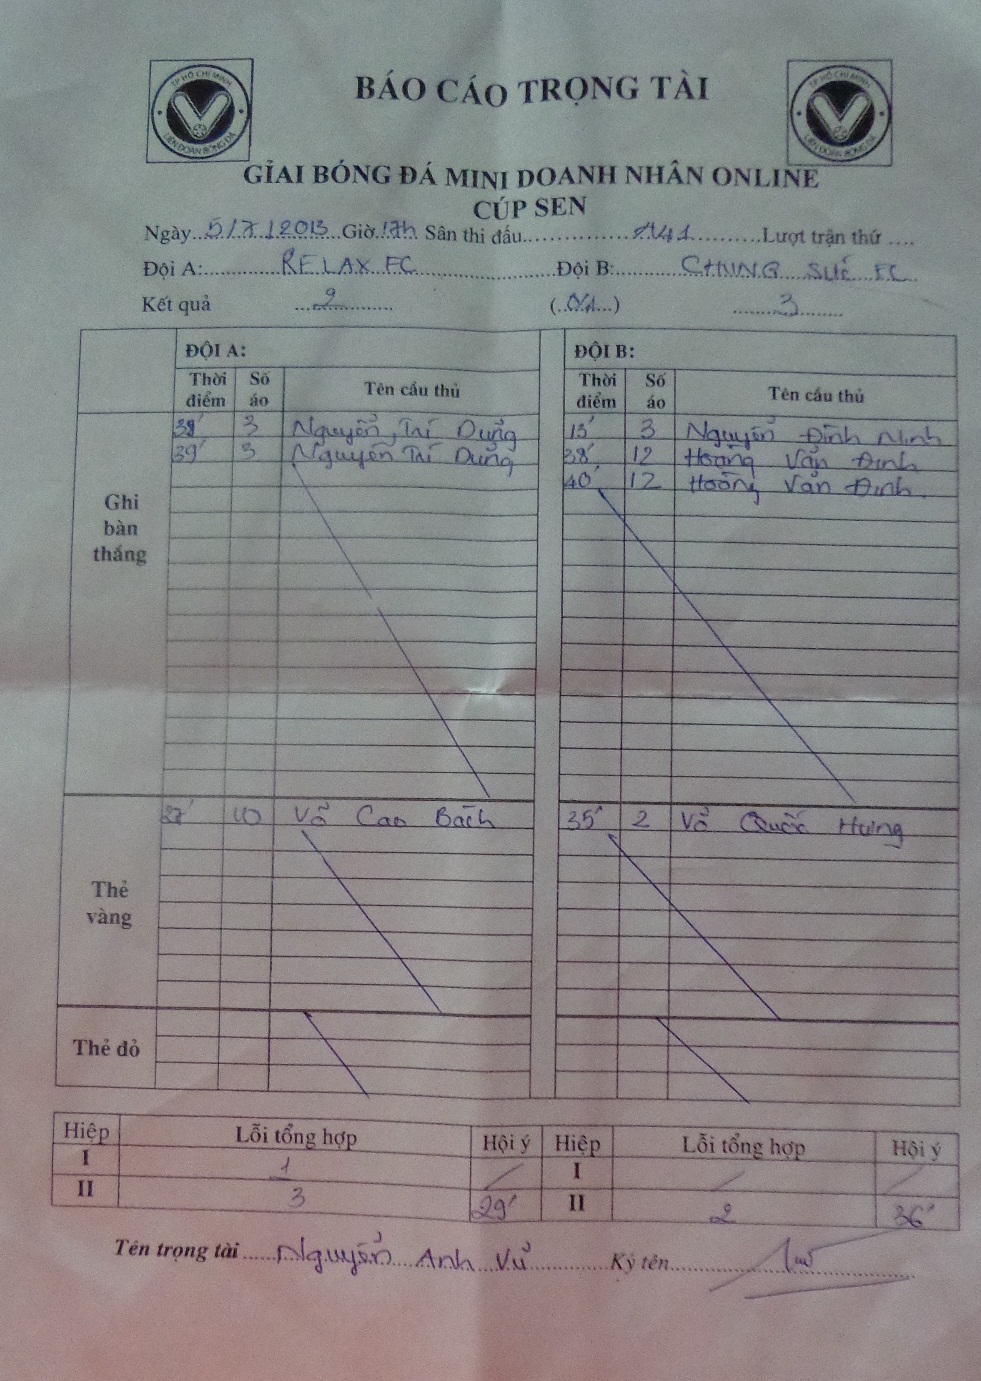 TP HỒ CHÍ MINH
LIÊN ĐOÀN BÓNG ĐÁ
TP HỒ CHÍ MINH
LIÊN ĐOÀN BÓNG ĐÁ
BÁO CÁO TRỌNG TÀI
GIẢI BÓNG ĐÁ MINI DOANH NHÂN ONLINE
CÚP SEN
Ngày..5/7/2013 Giờ.17h Sân thi đấu..................A41............Lượt trận thứ ....
Đội A:............RELAX FC.....................Đội B:...........CHUNG SỨC FC
Kết quả ...2............ (..0/1...) .......3........
ĐỘI A: ĐỘI B:
Thời điểm Số áo Tên cầu thủ Thời điểm Số áo Tên cầu thủ
Ghi bàn thắng
38' 3 Nguyễn Trí Dũng 13' 3 Nguyễn Đình Ninh
39' 3 Nguyễn Trí Dũng 38' 12 Hoàng Văn Định
40' 12 Hoàng Văn Định
Thẻ vàng
27' 10 Võ Cao Bách 35' 2 Võ Quốc Hưng
Thẻ đỏ
Hiệp Lỗi tổng hợp Hội ý Hiệp Lỗi tổng hợp Hội ý
I 1 / I / /
II 3 29' II 2 36'
Tên trọng tài .....Nguyễn Anh Vũ............. Ký tên...............................